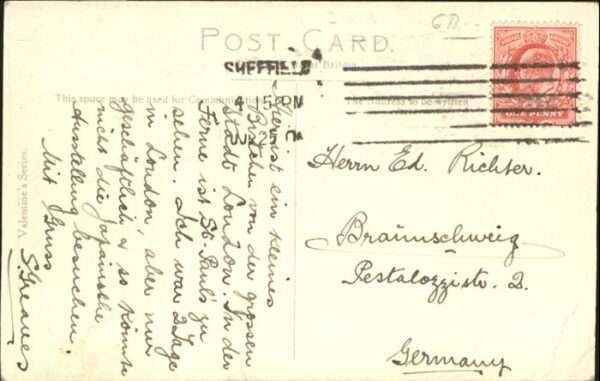 POST CARD.
SHEFFIELD
This space may be used for Communication
The Address to be written
ONE PENNY
Valentine's Series.
Hier ist ein kleines
Bildchen von der grossen
Stadt London. In der
Ferne ist St. Paul's zu
sehen. Ich war 2 Tage
in London, aber nur
geschäftlich & so könnte
nicht die Japanische
Ausstellung besuchen.
Mit Gruss
S. Greaves
Herrn Ed. Richter.
Braunschweig
Pestalozzistr. 2.
Germany